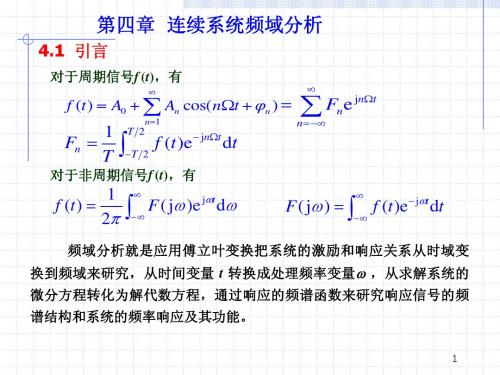 第四章 连续系统频域分析
4.1 引言
对于周期信号f (t)，有
f (t) = A₀ + ∑_{n=1}^{∞} Aₙ cos(nΩt + φₙ) = ∑_{n=-∞}^{∞} Fₙ e^{jnΩt}
Fₙ = \frac{1}{T} ∫_{-T/2}^{T/2} f (t)e^{-jnΩt} dt
对于非周期信号f (t)，有
f (t) = \frac{1}{2π} ∫_{-∞}^{∞} F( jω)e^{jωt} dω    F( jω) = ∫_{-∞}^{∞} f (t)e^{-jωt} dt
频域分析就是应用傅立叶变换把系统的激励和响应关系从时域变
换到频域来研究，从时间变量 t 转换成处理频率变量ω ，从求解系统的
微分方程转化为解代数方程，通过响应的频谱函数来研究响应信号的频
谱结构和系统的频率响应及其功能。
1